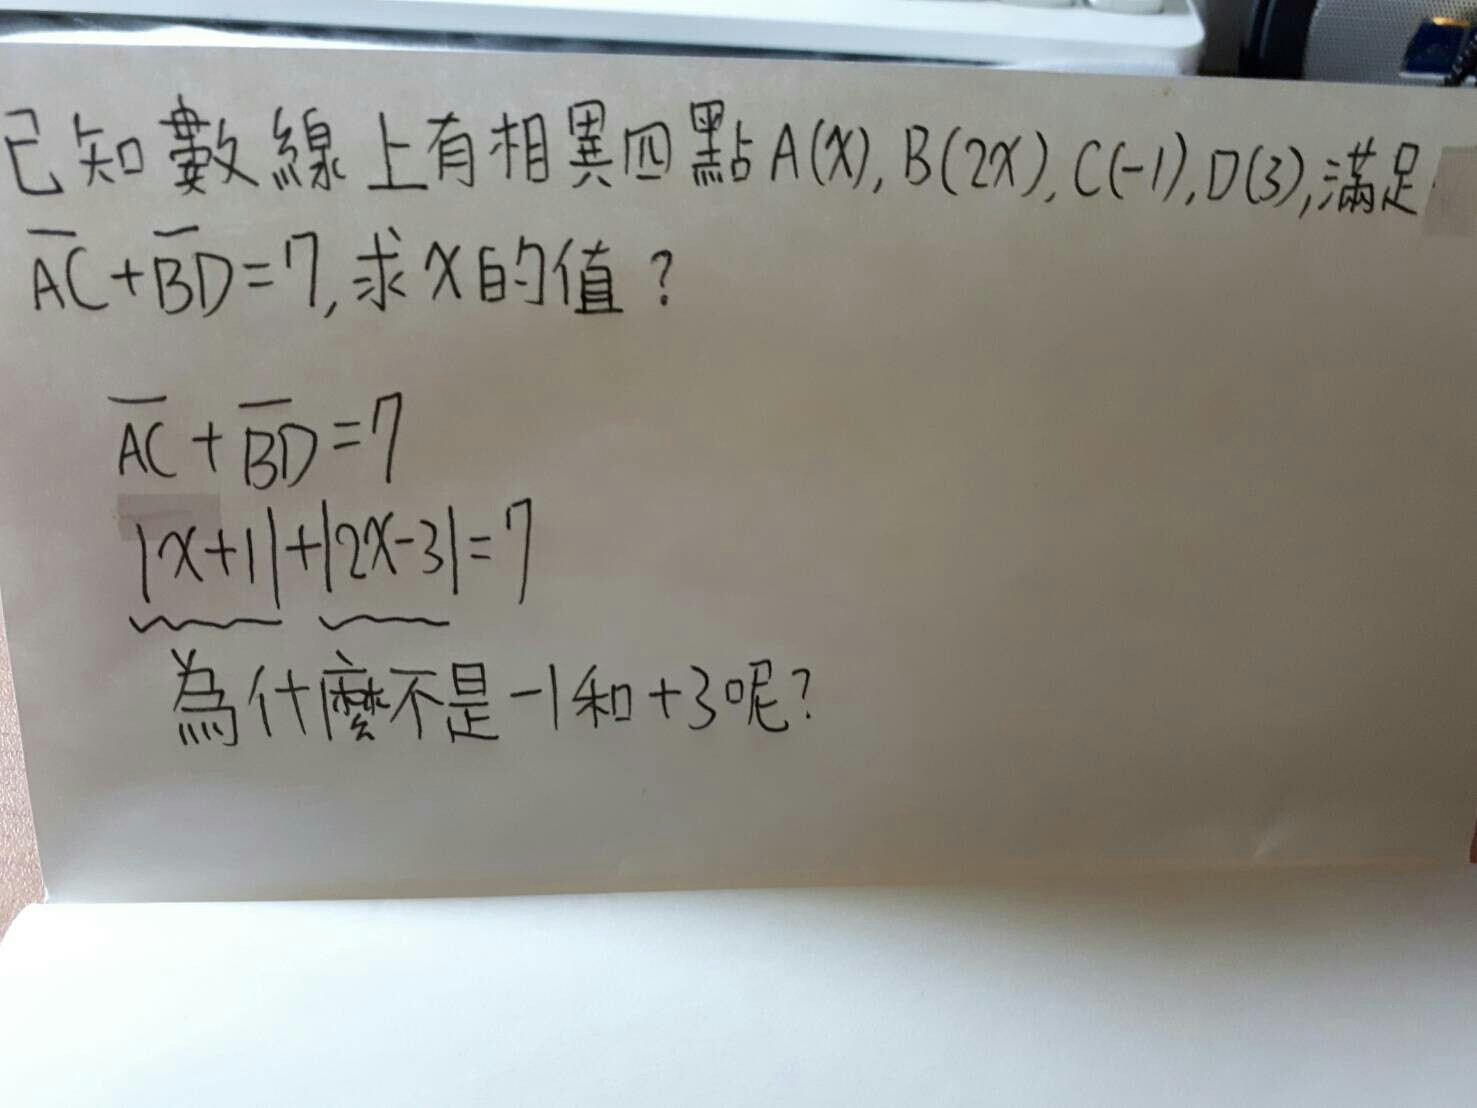 已知數線上有相異四點A(x), B(2x), C(-1), D(3),滿足
A̅C̅+B̅D̅=7,求x的值?
A̅C̅+B̅D̅=7
|x+1|+|2x-3|=7
為什麼不是-1和+3呢?